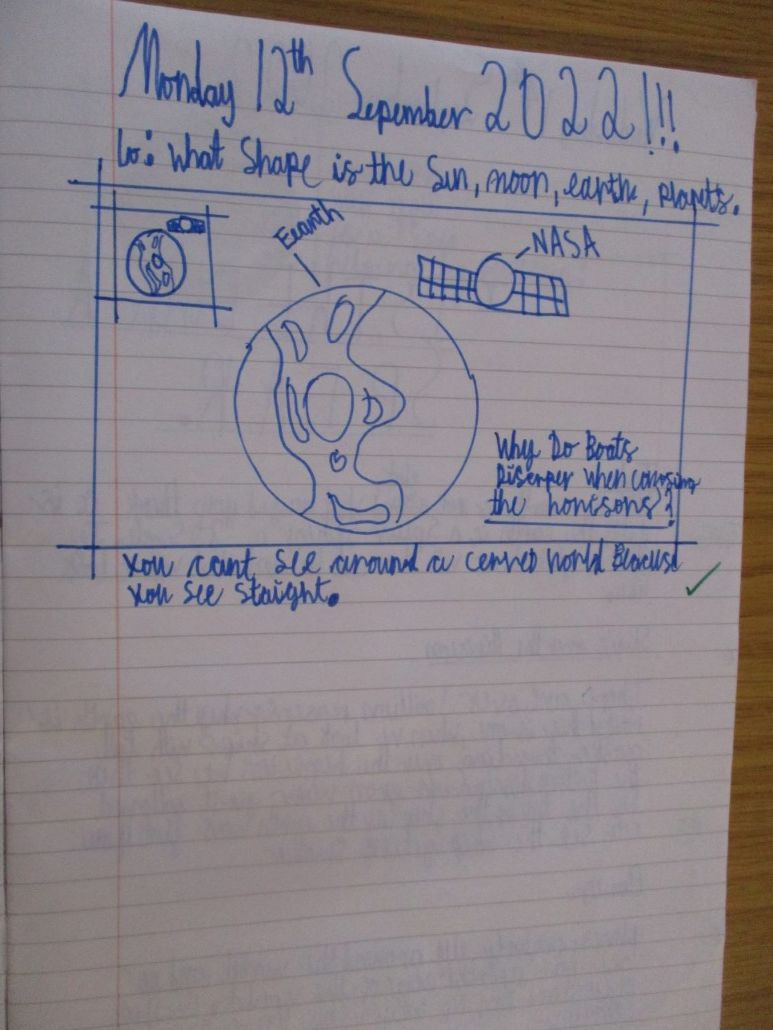 Monday 12th Sepember 2022!!!
Lo: What Shape is the Sun, moon, earthe, planets.
Eearth
NASA
Why Do Boats
Diserper when corosing
the honisons?
You cant see around a cerved world Beacuse
You see staight.